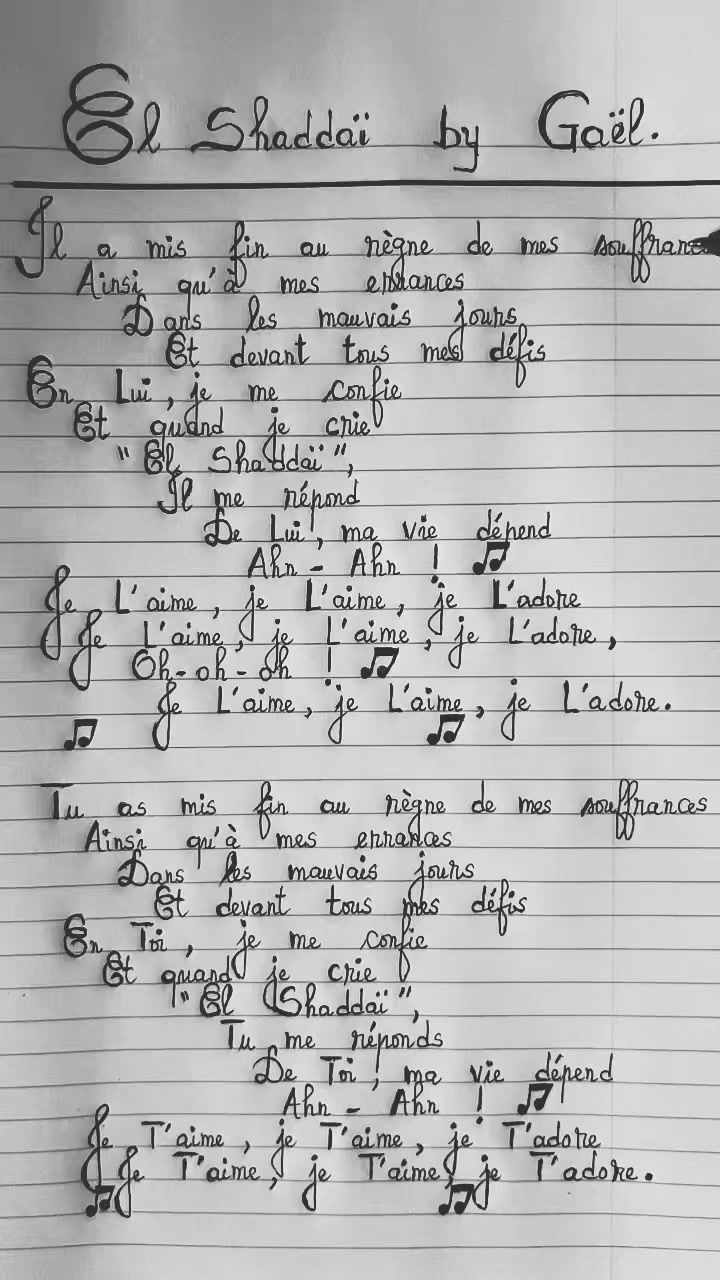 El Shaddaï by Gaël.
Il a mis fin au règne de mes souffrances
Ainsi qu'à mes errances
Dans les mauvais jours
Et devant tous mes défis
En Lui, je me confie
Et quand je crie
"El Shaddaï",
Il me répond
De Lui, ma vie dépend
Ahn - Ahn ! ♫
Je L'aime, je L'aime, je L'adore
Je L'aime, je L'aime, je L'adore,
Oh - oh - oh ! ♫
Je L'aime, je L'aime, je L'adore.
♫ ♫
Tu as mis fin au règne de mes souffrances
Ainsi qu'à mes errances
Dans les mauvais jours
Et devant tous mes défis
En Toi, je me confie
Et quand je crie
"El Shaddaï",
Tu me réponds
De Toi, ma vie dépend
Ahn - Ahn ! ♫
Je T'aime, je T'aime, je T'adore
Je T'aime, je T'aime, je T'adore.
♫ ♫